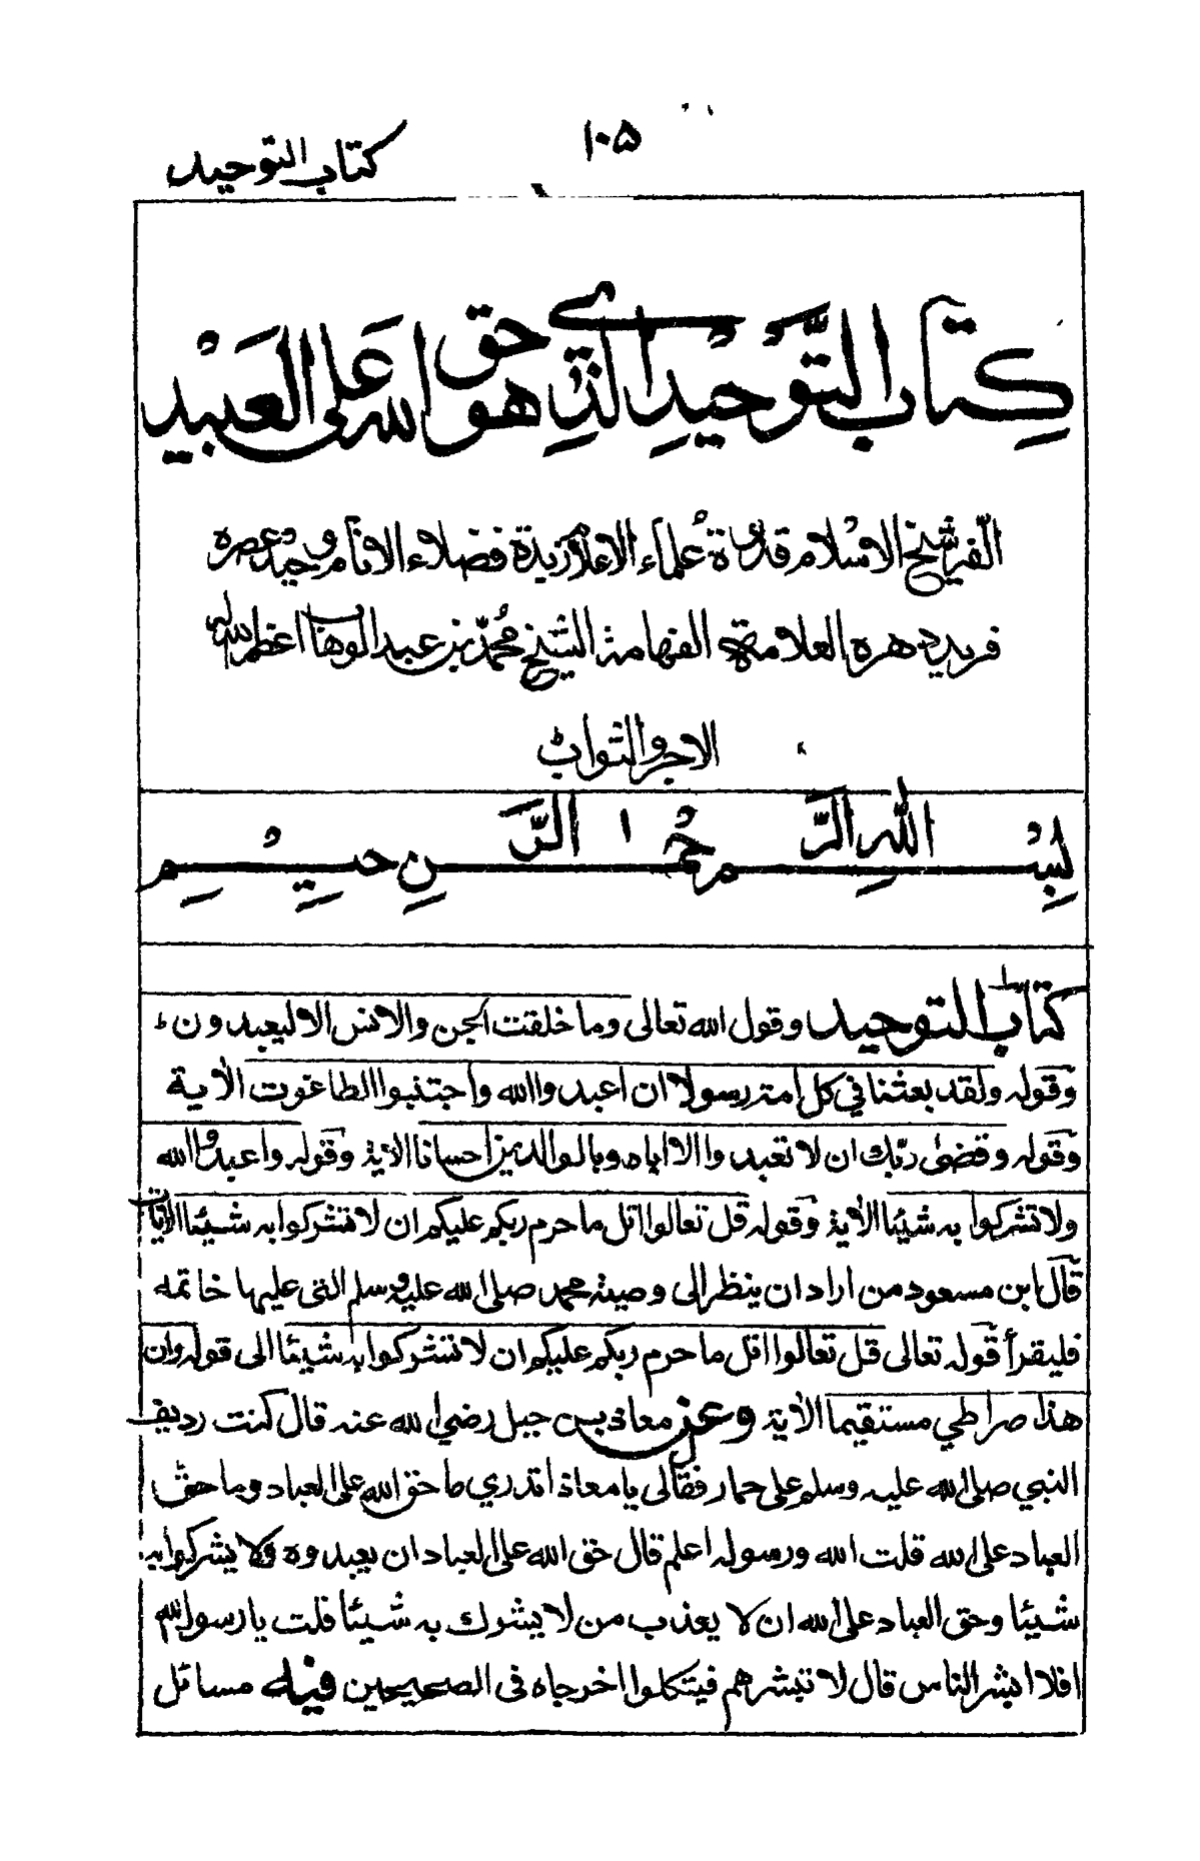 ۱۰۵
كتاب التوحيد
كِتَابُ التَّوْحِيْدِ الَّذِي هو حق الله عَلى العَبْيد
الّفه شيخ الاسْلام قدوة عُلماء الاعلام زبدة فضلاء الانام وحيد عصره
فريد دهره العلامة الفهامة الشيخ محُمّد بن عبد الوهاب اعظم الله له
الاجر والثواب
بِسْمِ اللّٰهِ الرَّحْمٰنِ الرَّحِيْمِ
كتاب التوحيد وقول الله تعالى وما خلقت الجن والانس الا ليعبدون
وقوله ولقد بعثنا في كل امة رسولا ان اعبدوا الله واجتنبوا الطاغوت الاٰية
وقوله وقضىٰ ربّك ان لا تعبدوا الا اياه وبالوالدين احسانا الاٰية وقوله واعبدوا الله
ولا تشركوا به شيئا الاٰية وقوله قل تعالوا اتل ما حرم ربكم عليكم ان لا تشركوا به شيئا الاٰيات
قال ابن مسعود من اراد ان ينظر الى وصية محمد صلى الله عليه وسلم التى عليها خاتمه
فليقرأ قوله تعالى قل تعالوا اتل ما حرم ربكم عليكم ان لا تشركوا به شيئا الى قوله وان
هذا صراطي مستقيما الاٰية وعن معاذ بن جبل رضي الله عنه قال كنت رديف
النبي صلى الله عليه وسلم على حمار فقال لى يا معاذ اتدري ما حق الله على العباد وما حق
العباد على الله قلت الله ورسوله اعلم قال حق الله على العباد ان يعبدوه ولا يشركوا به
شيئا وحق العباد على الله ان لا يعذب من لا يشرك به شيئا قلت يا رسول الله
افلا ابشر الناس قال لا تبشرهم فيتكلوا اخرجاه فى الصحيحين فيه مسائل